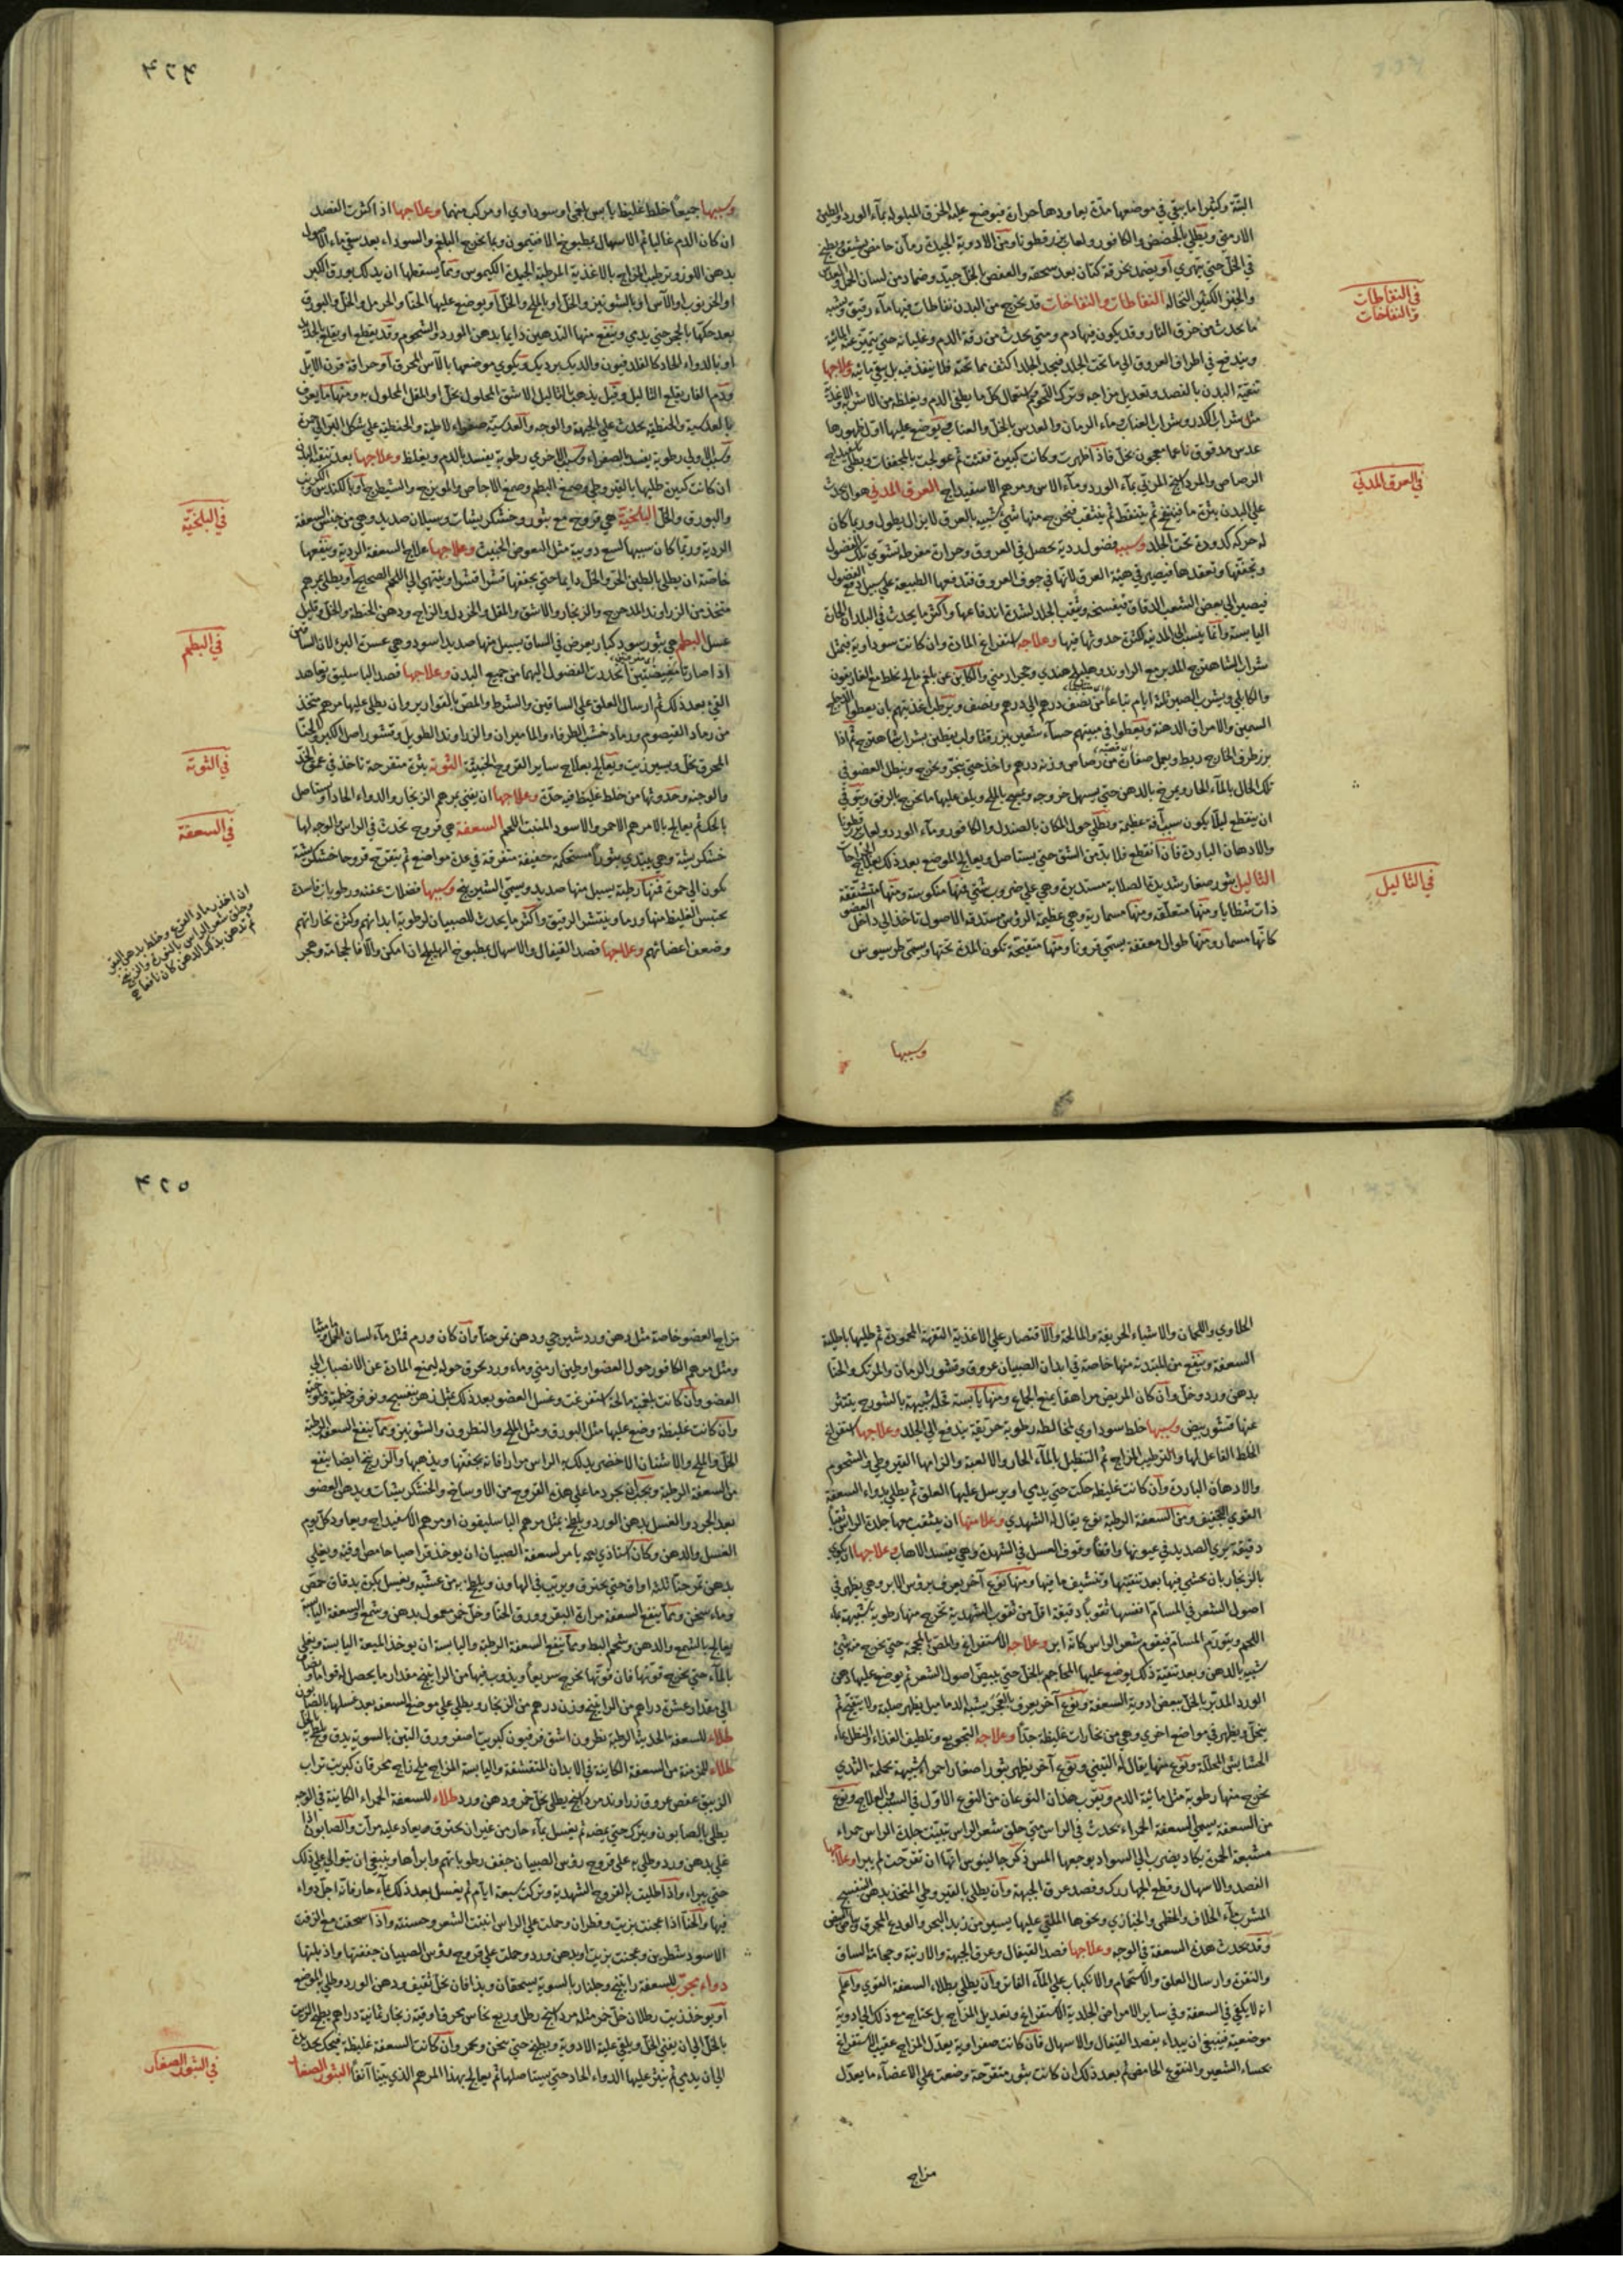 البتة وكثيرا ما يبقى في موضعها مدة يعاودها حرارة فيوضع عليه الخرق المبلولة بماء الورد والطين
الارمني ويطلى بالحضض والكافور ولعاب بزرقطونا ومن الادوية الجيدة رمان حامض يشقق ويطبخ
في الخل حتى يتهرى او يضمد بخرقة كتان بعد سحقه والعفص بالخل جيد وضماد من لسان الحمل والعدس
والخبز الكثير النخالة النفاطات والنفاخات قد يخرج من البدن نفاطات فيها ماء رقيق وشبه
ما يحدث من حرق النار وقد يكون فيها دم ومتى يحدث من رقة الدم وغليانه حتى يتميز عنه المائية
ويندفع في اطراف العروق الى ما تحت الجلد فيجد الجلد اكثف مما تحته فلا ينفذ فيه بل يبقى مائية وعلاجها
تنقية البدن بالفصد وتعديل مزاجه وترك اللحوم واستعمال كل ما يطفئ الدم ويغلظه من الاشربة والاغذية
مثل شراب الكدر وشراب العناب وماء الرمان والعدس بالخل والعناب ويوضع عليها اول ظهورها
عدس مدقوق ناعما معجون بخل فاذا ظهرت وكانت كبيرة فقئت ثم عولجت بالمجففات ويطلى باسفيداج
الرصاص والمرداسنج المربى بماء الورد وماء الاس ومرهم الاسفيداج العرق المدني هو ان يحدث
على البدن بثرة ما فينتفخ ثم يتنفط ثم يتثقب فيخرج منها شيء شبيه بالعرق لا يزال يطول وربما كان
له حركة كدودة تحت الجلد وسببه فضول ردية يحصل في العروق وحرارة مفرطة تشوي تلك الفضول
ويجففها وتعقدها فيصير في هيئة العرق لانها في جوف العروق فتدفعها الطبيعة على سبيل دفع الفضول
فيصير الى بعض الشعب الدقاق فيفسخ ويثقب الجلد لشدة اندفاعها واكثر ما يحدث في البلدان الحارة
اليابسة وانما ينسب الى المدينة لكثرة حدوثها فيها وعلاجه استفراغ المادة وان كانت سوداوية فبمثل
شراب الشاهترج المدبر مع الراوند وهليلج هندي وحجر ارمني والكائن عن بلغم مالح يخلط مع الغاريقون
والكابلي ويشرب الصبر ثلثة ايام تباعا من نصف درهم الى درهم ونصف ويرطب اغذيتهم بان يعطوا الدجاج
السمين والامراق الدهنة ويعطوا في مبيتهم حساء شعير
برز طرفه الخارج ربط ويعمل صفائر من رصاص وزنه درهم واخذ حتى ينجر ويخرج وينطل العضو في
تلك الحال بالماء الحار ويمرخ بالدهن حتى يسهل خروجه ويمسح بالملح ويلف عليها ما يخرج بالرفق ويتوقى
ان ينقطع لئلا يكون سبب آفة عظيمة ويطلى حول المكان بالصندل والكافور وماء الورد ولعاب بزرقطونا
والادهان الباردة فان انقطع فلا بد من الشق حتى يستاصل ويعالج الموضع بعد ذلك بعلاج الجراحات
الثاليل بثور صغار شديدة الصلابة مستديرة وهي على ضروب شتى فمنها منكوسة ومنها متشققة
ذات شظايا ومنها متعلقة ومنها مسمارية وهي عظيمة الرؤس مستدقة الاصول تاخذ الى داخل العضو
كانها مسمار ومنها طوال معقفة يسمى قرونا ومنها متفتحة تكون المدة تحتها ويسمى طرسيوس
وسببها
في النفاطات
والنفاخات
في العرق المدني
في الثاليل
٤٢٤
وسببها جميعا خلط غليظ يابس بلغمي او سوداوي او مركب منهما وعلاجها اذا كثرت الفصد
ان كان الدم غالبا ثم الاسهال بمطبوخ الافتيمون وبما يخرج البلغم والسوداء بعد سقي ماء الاصول
بدهن اللوز وترطيب المزاج بالاغذية المرطبة الجيدة الكيموس ومما يسقطها ان يدلك بورق الكبر
او الخرنوب او الآس او بالشونيز والخل او بالملح والخل او يوضع عليها الحنا والحرمل والخل والبورق
بعد حكها بالحجر حتى يدمى وينفع منها التدهين دايما بدهن الورد والشحوم وقد يقطع او يقلع بالحديد
او بالدواء الحاد كالفلدفيون والديك برديك ويكوى موضعها بالآس المحرق او حرافة قرن الايل
ودم الفار يقلع الثاليل وقيل يذهب الثاليل الاشق المحلول بخل او المقل المحلول به ومنها ما يعرف
بالعدسية والحنطية يحدث على الجبهة والوجه والعدسية صفراء لاطية والحنطية على شكل
وسبب الاولى رطوبة يفسد بالصفراء وسبب الاخرى رطوبة يفسد بالدم ويغلظ وعلاجها بعد تنقية البدن
ان كانت كبيرة طليها بالقيروطي وصمغ البطم وصمغ الاجاص والميويزج والشيطرج او بالكندس والكبريت
والبورق والخل البلخية هي قروح مع بثور وخشكريشات وسيلان صديد وهي من جنس السعفة
الردية وربما كان سببها لسع دويبة مثل البعوض الخبيث وعلاجها علاج السعفة الردية وينفعها
خاصة ان يطلى بالطين الحر والخل دايما حتى يجففها قشرا قشرا وينتهي الى اللحم الصحيح او يطلى بمرهم
متخذ من الزراوند المدحرج والزنجار والاشق والمقل والخردل والزاج ودهن الحنطة والخل وقليل
عسل البطم هي بثور سود كبار يعرض في الساق يسيل منها صديد اسود وهي عسرة البرء لان الساقين
اذا صارتا مفيضتين انحدرت الفضول اليهما من جميع البدن وعلاجها فصد الباسليق وتعاهد
القيء بعد ذلك ثم ارسال العلق على الساقين والشرط والمص بالقوارير وان يطلى عليها مرهم متخذ
من رماد القيصوم ورماد خشب الطرفاء والماميران والزراوند الطويل وقشور اصل الكبر والحنا
المحرق بخل ويسير زيت ويعالج بعلاج ساير القروح الخبيثة التوثة بثرة متقرحة تاخذ في عمق الخد
والوجنة وحدوثها من خلط غليظ فيه حدة وعلاجها ان يفنى بمرهم الزنجار والدواء الحاد او يستاصل
بالحك ثم يعالج بالمرهم الاحمر والاسود المنبت اللحم السعفة هي قروح تحدث في الراس والوجه لها
خشكريشة وهي يبتدئ بثورا مستحكة خفيفة متفرقة في عدة مواضع ثم يتقرح قروحا خشكريشة
تكون الى حمرة فمنها رطبة يسيل منها صديد ويسمى الشيرينج وسببها فضلات عفنة ورطوبات فاسدة
يحتبس الغليظ منها ورما وينتشر الرقيق واكثر ما يحدث للصبيان لرطوبة ابدانهم وكثرة بخاراتهم
وضعف اعضائهم وعلاجها فصد القيفال والاسهال بمطبوخ الهليلج ان امكن والا فالحجامة وهجر
في البلخية
في البطم
في التوثة
في السعفة
ان اخذ رماد القرع وخلط بدهن
وحلق شعر الراس بالنورة والزرنيخ
ثم تدهن بذلك الدهن كان نافعا
الحلاوى واللحمان والاشياء الحريفة والمالحة والاقتصار على الاغذية التفهة المحمودة ثم طليها باطلية
السعفة وينفع من المبتدئة منها خاصة في ابدان الصبيان عروق وقشور الرمان والمرتك والحنا
بدهن ورد وخل وان كان المريض مراهقا يمنع الجماع ومنها يابسة قحلة شبيهة بالشورج ينتثر
عنها قشور بيض وسببها خلط سوداوي يخالطه رطوبة حريفة يندفع الى الجلد وعلاجها استفراغ
الخلط الفاعل لها والترطيب المزاج ثم التنطيل بالماء الحار والالعبة والزامها القيروطي والشحوم
والادهان الباردة وان كانت غليظة حكت حتى يدمى او يرسل عليها العلق ثم يطلى بدواء السعفة
القوي التجفيف ومن السعفة الرطبة نوع يقال له الشهدي وعلامتها ان يثقب معها جلدة الراس ثقبا
دقيقة يرى الصديد في عيونها واقفا وقوف العسل في الشهدة وهي يفسد الاهاب وعلاجها ان يكوى
بالزنجار بان يحشى فيها بعد تنقيتها وتنشيف ما فيها ومنها نوع آخر يعرف برؤس الابر وهي يظهر في
اصول الشعر في المسام انفسها ثقوبا دقيقة اقل من ثقوب الشهدية تخرج منها رطوبة شبيهة بماء
اللحم ويتورم المسام فيقوم شعر الراس كانه ابر وعلاجه الاستفراغ والمص بالمحجمة حتى يخرج منه شيء
شبيه بالدهن وبعد تنقية ذلك يوضع عليها المحاجم بالخل حتى يبيض اصول الشعر ثم يوضع عليها دهن
الورد المدبر بالخل ببعض ادوية السعفة ونوع آخر يعرف بالعجر يشبه الدماميل يظهر صلبة ولا ينفتح ثم
ينحل ويظهر في مواضع اخرى وهي من بخارات غليظة جدا وعلاجه التجويع وتلطيف الغذاء والنطل بماء
الحشايش المحللة ونوع منها يقال له التيني ونوع آخر يظهر بثورا صغارا حمراء شبيهة بحلمة الثدي
يخرج منها رطوبة مثل مائية الدم ويقرب هذان النوعان من النوع الاول في السبب والعلاج ونوع
من السعفة يسمى السعفة الحمراء تحدث في الراس متى حلق شعر الراس تبينت جلدة الراس حمراء
مشبعة الحمرة يكاد يضرب الى السواد يوجعها المس ذكر جالينوس انها ان تقرحت لم يبرا وعلاجها
الفصد والاسهال وقطع الجهارك وفصد عرق الجبهة وان يطلى بالقيروطي المتخذ بدهن البنفسج
المشرب بماء الخلاف والخطمي والخبازي ونحوها الملقى عليها يسير من زبد البحر والودع المحرق
وقد يحدث هذه السعفة في الوجه وعلاجها فصد القيفال وعرق الجبهة والارنبة وحجامة الساق
والنقرة وارسال العلق والاستحمام والانكباب على الماء الفاتر وان يطلى بطلاء السعفة القوي واعلم
انه لا يكفي في السعفة وفي ساير الامراض الجلدية الاستفراغ وتعديل المزاج بل يحتاج مع ذلك الى ادوية
موضعية فينبغي ان يبداء بفصد القيفال والاسهال فان كانت صفراوية يعدل المزاج عقيب الاستفراغ
بحساء الشعير والنقوع الحامض ثم بعد ذلك ان كانت بثور متقرحة وضعت على الاعضاء ما يعدل
مزاج
٤٢٥
مزاج العضو خاصة مثل دهن ورد شيرجي ودهن تمرحنا وان كان ورم فمثل ماء لسان الحمل وماميثا
ومثل مرهم الكافور حول العضو او طين ارمني وماء ورد يحرق حوله ليمنع المادة عن الانصباب الى
العضو وان كانت بلغمية مالحة استفرغت وغسل العضو بعد ذلك بمثل دهن بنفسج ونوفر وخطمية
وان كانت غليظة وضع عليها مثل البورق ومثل الملح والنطرون والشونيز ومما ينفع السعفة الرطبة
الخل والملح والاشنان الاخضر يدلك به الراس مرارا فانه يجففها ويذهبها والزرنيخ ايضا ينفع
من السعفة الرطبة ويجب ان يجرد ما على هذه القروح من الاوساخ والخشكريشات ويدهن العضو
بعد الجرد والغسل بدهن الورد ويلطخ بمثل مرهم الباسليقون او مرهم الاسفيداج ويعاود كل يوم
الغسل والدهن وكان استاذي رحمه يامر لسعفة الصبيان ان يوخذ قراصيا حامض اوقية ويغلى
بدهن تمرحنا ثلث اواق حتى يحترق ويربى في الهاون ويلطخ به من عشية ويغسل بكرة بدقاق حمص
وماء سخن ومما ينفع السعفة مرارة البقر وورق الحنا وخل خمر معمول بدهن وشمع والسعفة اليابسة
يعالج بالشمع والدهن وشحم البط ومما ينفع السعفة الرطبة واليابسة ان يوخذ الميعة اليابسة ويغلى
بالماء حتى يخرج قوتها فان قوتها يخرج سريعا ويذوب فيها من الراتينج مقدار ما يحصل له قوام
الى مقدار عشرة دراهم من الراتينج وزن درهم من الزنجار ويطلى على موضع السعفة بعد غسلها بالصابون
طلاء للسعفة الحديثة الرطبة نطرون اشق فرفيون كبريت اصفر ورق التين بالسوية يدق ويلطخ بالخل
طلاء للمزمنة من السعفة الكاينة في الابدان المتقشفة واليابسة المزاج ملح زاج محرقان كبريت تراب
الزيبق عفص عروق زراوند مرداسنج يطلى بخل خمر ودهن ورد طلاء للسعفة الحمراء الكاينة في الوجه
يطلى بالصابون ويترك حتى يمضه ثم يغسل بماء حار من غير ان يحترق ويعاد عليه مرات والصابون اذا
غلي بدهن ورد وطلي به على قروح رؤس الصبيان جفف رطوباتهم وابراها وينبغي ان يتوالى على ذلك
حتى يبراء واذا طليت به القروح الشهدية وتركت سبعة ايام ثم يغسل بعد ذلك بماء حار فانه اجل دواء
فيها والحنا اذا عجنت بزيت وقطران وحملت على الراس انبتت الشعر وحسنته واذا سحقت مع الزفت
الاسود شطرين وعجنت بزيت او بدهن ورد وحملت على قروح رؤس الصبيان جففتها واذبلتها
دواء مجرب للسعفة راتينج وجلنار بالسوية يسحقان ويذافان بخل ثقيف ودهن الورد وطلي به الموضع
او يوخذ زيت رطلان خل خمر مثله مرداسنج رطل وربع نحاس محرق اوقية زنجار ثمانية دراهم يطبخ الزيت
بالخل الى ان يفنى الخل ويلقى عليه الادوية ويطبخ حتى يسخن ويحمر وان كانت السعفة غليظة فيحك بحديدة
الى ان يدمى ثم ينثر عليها الدواء الحاد حتى يستاصلها ثم يعالج بهذا المرهم الذي بينا آنفا البثور الصغار
في البثور الصغار